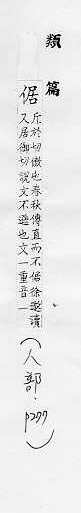 類篇
倨
斤於切傲也春秋傳直而不倨徐邈讀
又居御切說文不遜也文一重音一
(人部.p277)